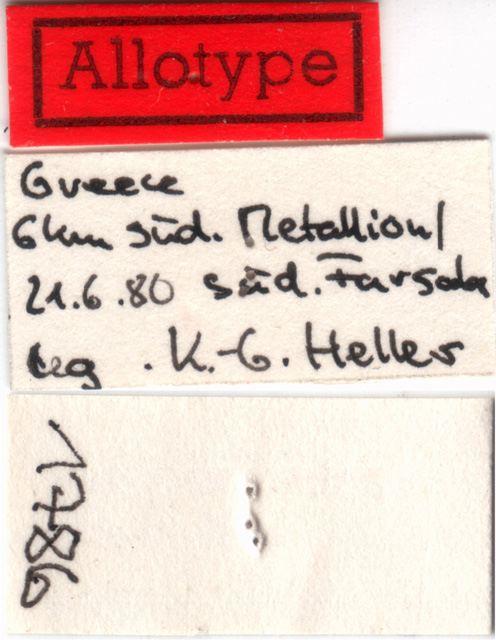 Allotype
Greece
6km süd. Metallion/
21.6.80 süd. Farsala
leg. K.-G. Heller
1786